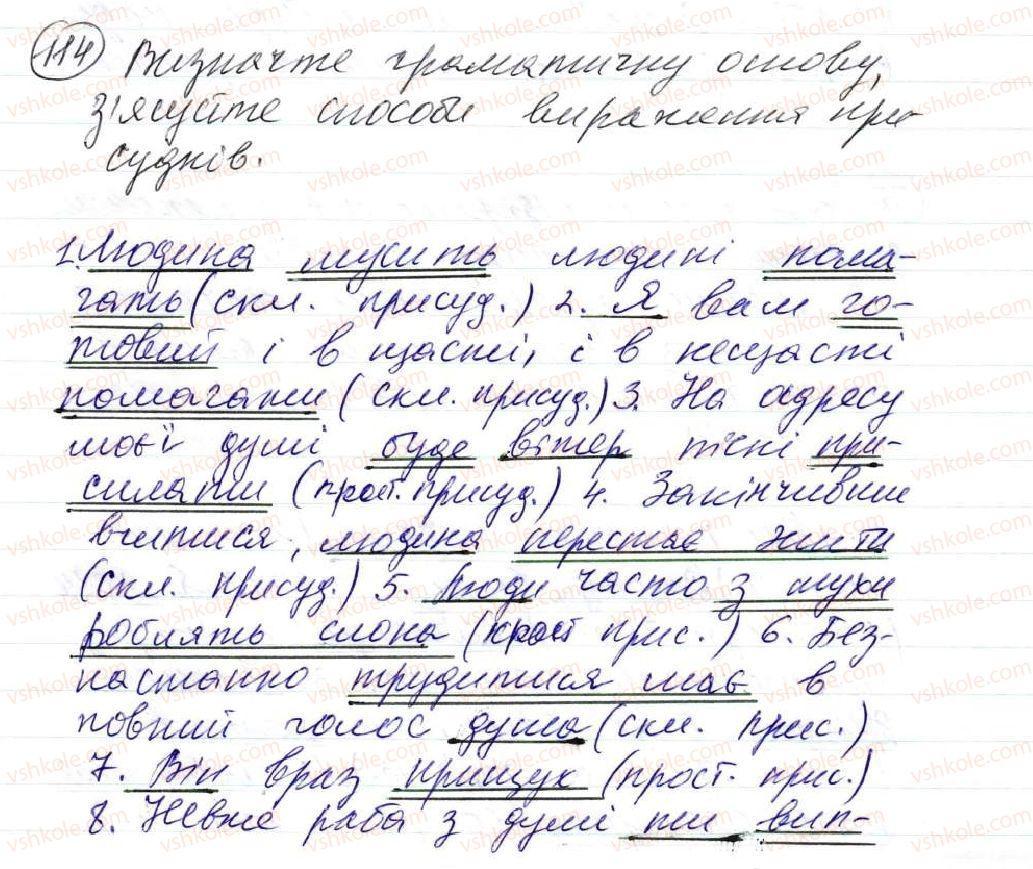 114 Визначте граматичну основу,
з'ясуйте способи вираження при-
судків.
1. Людина мусить людині пома-
гать (скл. присуд.) 2. Я вам го-
товий і в щасті, і в нещасті
помагати (скл. присуд.) 3. На адресу
моєї душі буде вітер пісні при-
силати (прост. присуд.) 4. Закінчивши
вчитися, людина перестає жити
(скл. присуд.) 5. Люди часто з мухи
роблять слона (прост прис.) 6. Без-
настанно трудитися має в
повний голос душа (скл. прис.)
7. Він враз прищух (прост. прис.)
8. Невже раба з душі ти вип-